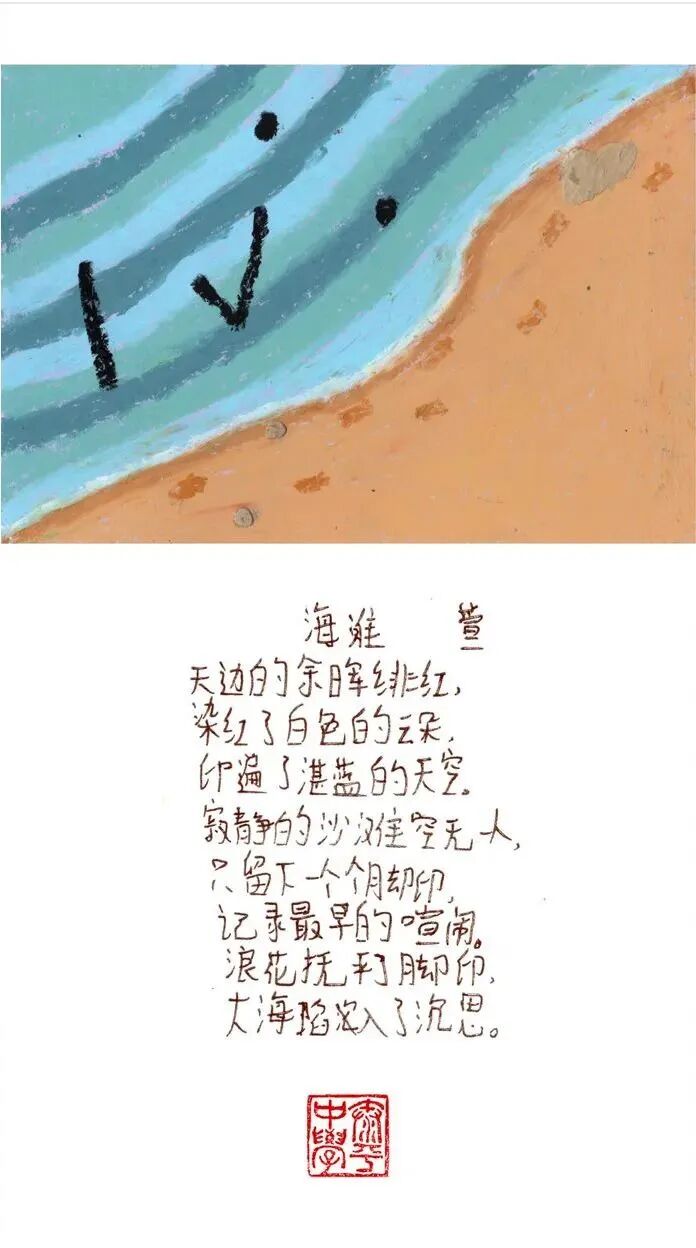 海滩 萱
天边的余晖绯红,
染红了白色的云朵,
印遍了湛蓝的天空。
寂静的沙滩空无人,
只留下一个个脚印,
记录最早的喧闹。
浪花抚平了脚印,
大海陷入了沉思。
中學